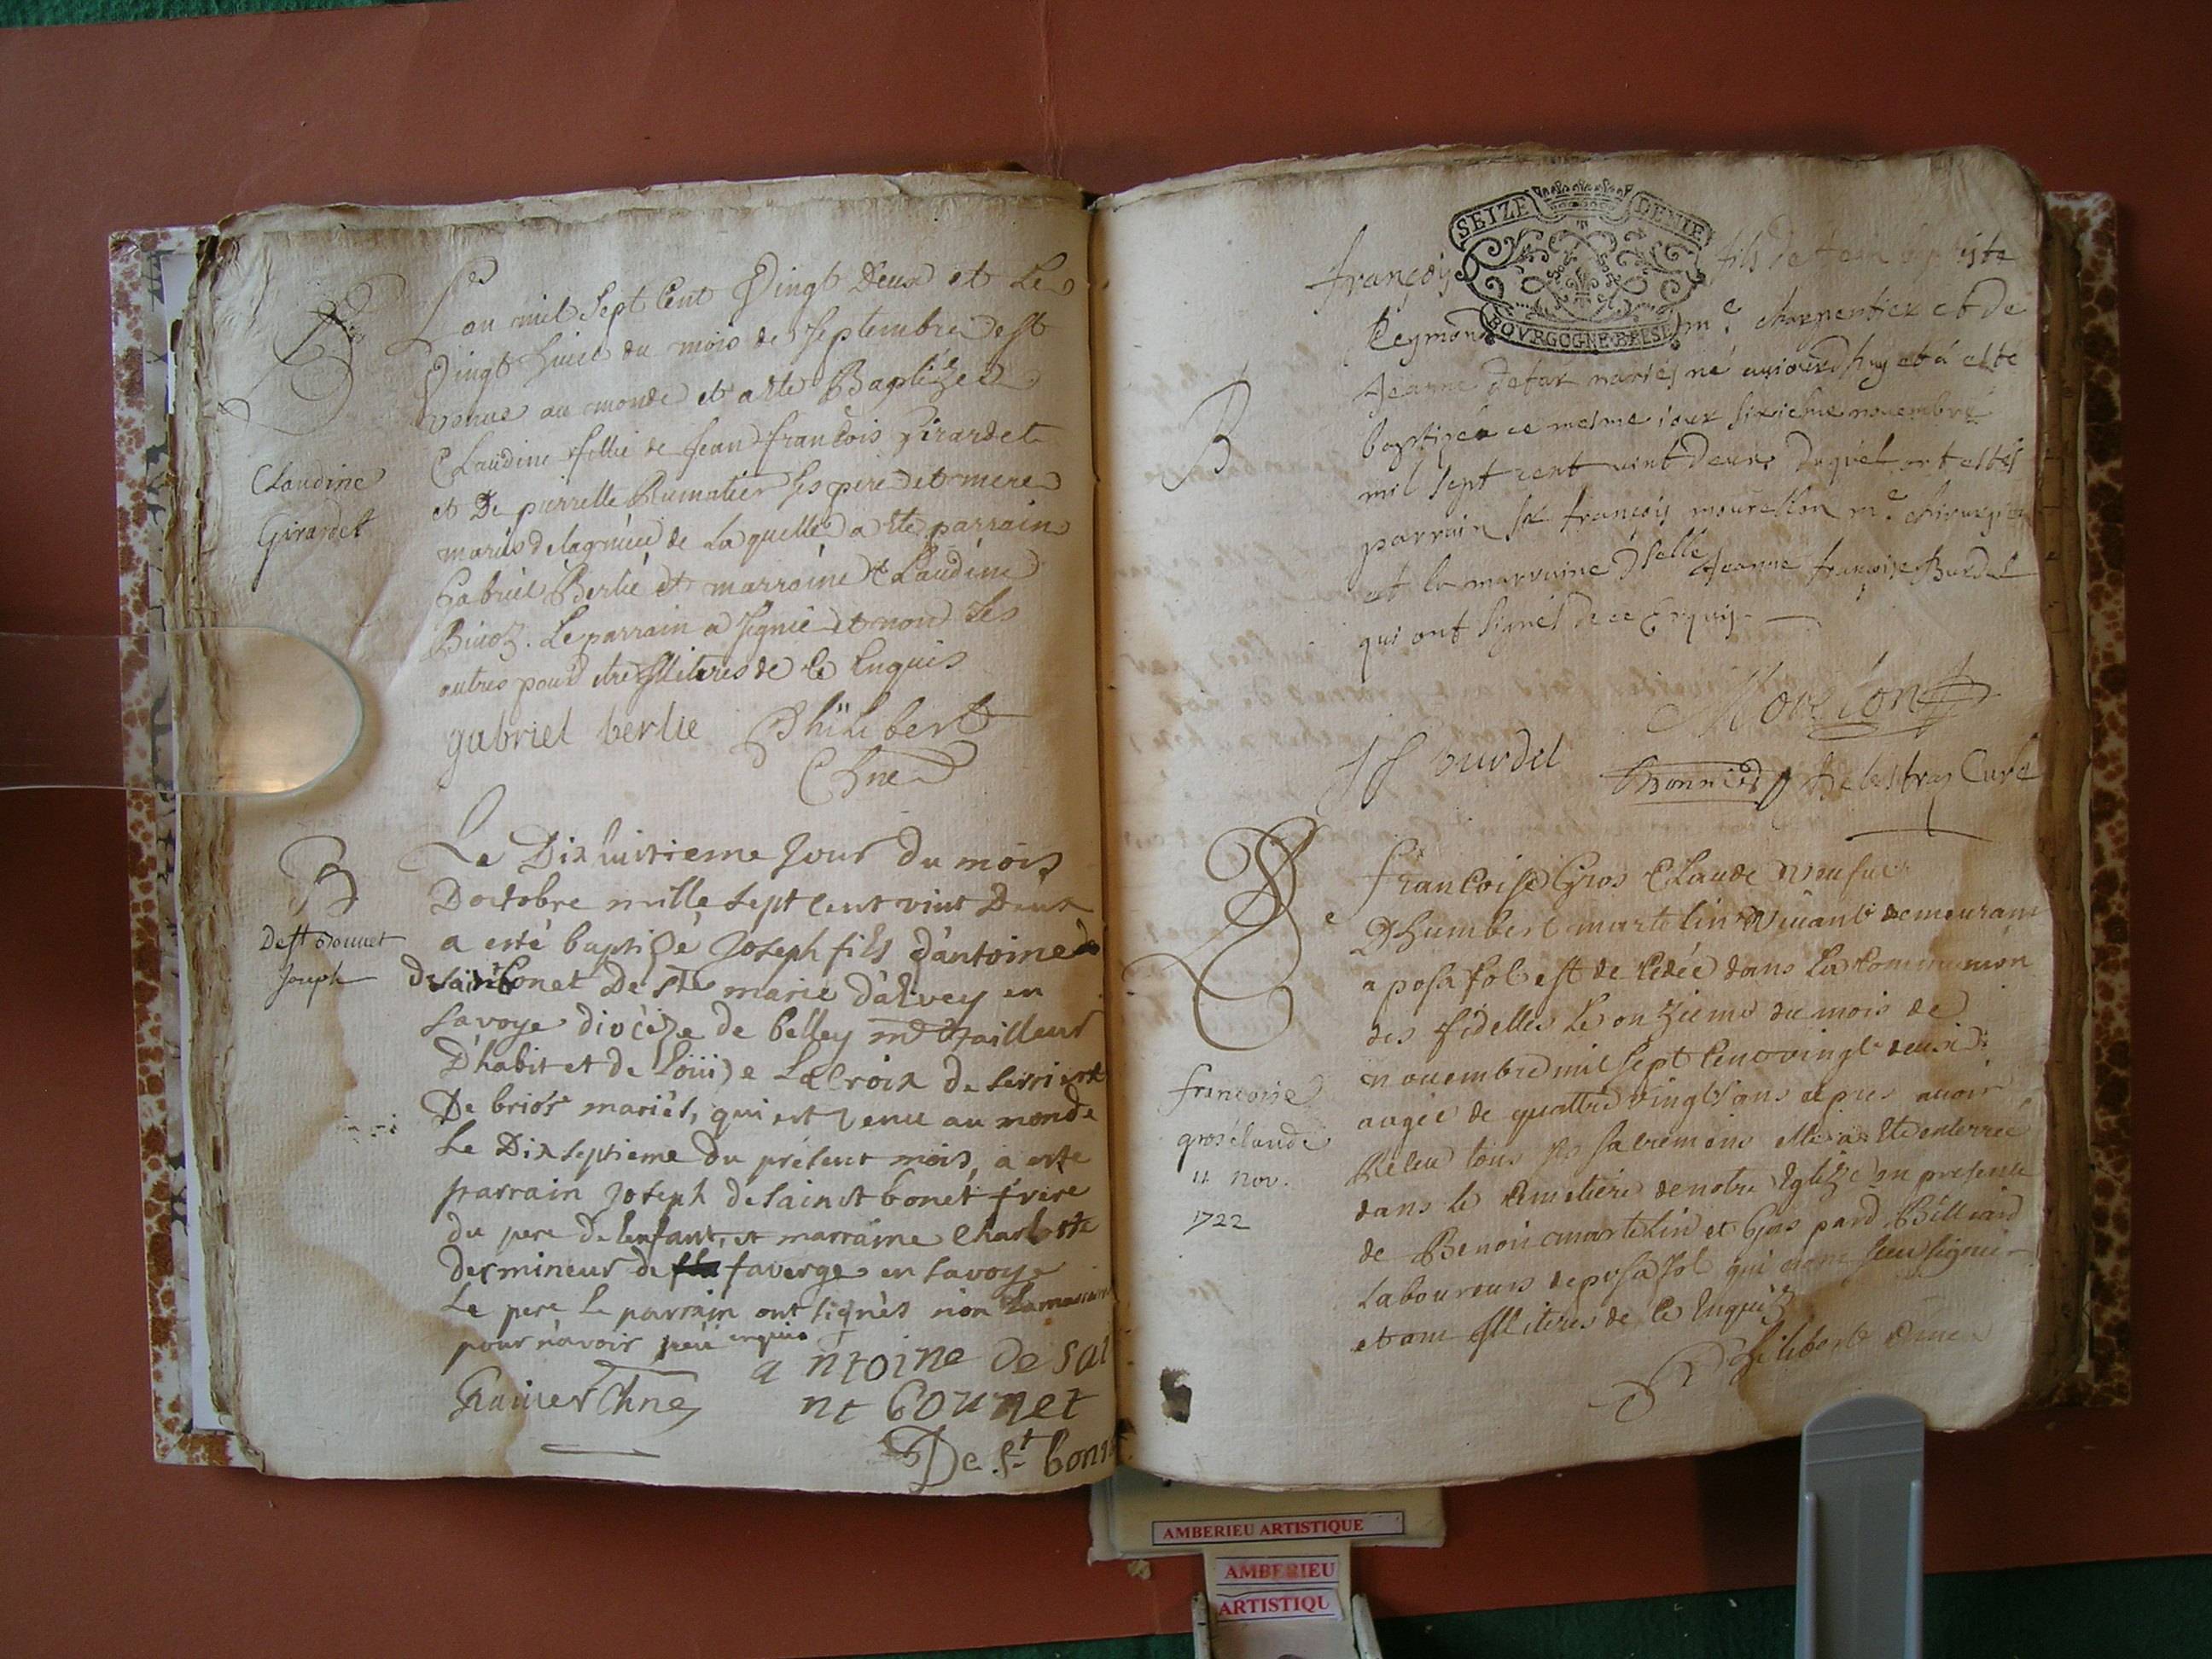 B
Claudine
Girardet
Lan mil Sept Cent Vingt Deux et Le
Vingt huict du mois de Septembre est
venue au monde et a ete Baptizée
Claudine fillie de Jean francois Girardet
et De pierrette Rumatier ses pere et mere
mariés de lagnieu de Laquelle a ete parrain
Gabriel Berlie et marraine Claudine
Le parrain a signie et non Les
autres pour etre illiteres de Ce Enquis
gabriel berlie Philibert
Chne
B
De st bonnet
Joseph
Le Dixhuitieme Jour du mois
Doctobre mille sept cent vint Deux
a esté baptizé Joseph fils d'antoine
desainctbonet De Ste marie d'alvey en
Savoye diocèze de belley md tailleur
D'habit et de Loüize Lacroix de
De briór mariés, qui est venu au monde
Le Dixseptieme du présent mois, a este
parrain Joseph desainct bonet frère
du pere de lenfant, et marraine Charlotte
Dermineur de faverge en savoye
Le pere Le parrain ont signés non Lamarraine
pour n'avoir enquis
antoine de sai
nt bounet
Chne
De St bonnet
SEIZE DENIE
BOVRGOGNE BRESE
françois fils de Jean baptiste
Reymond me charpentier et de
B
Jeanne defar mariés né aujourdhuy et á esté
baptizé ce mesme jour sixiesme novembre
mil sept cent vint deux, duquel ont estés
parrain sr françois mourellon me chirurgien
et la marraine Dselle Jeanne françoise Burdel
qui ont signés de ce Enquis
Morelon
JF burdel
Curé
françoise
gros claude
11 nov.
1722
francoise Gros Claude veufue
Dhumbert martelin Vivant demeurant
a posafol est de cedée dans La Communion
des fidelles Le onzieme du mois de
nouembre mil sept Cent vingt deux
aagée de quattre vingts ans apres auoir
Receu tous ses sacremens elle a ete enterrée
dans le Cimetiere de notre Eglize en presence
de Benoit martelin et Gaspard Billiard
Laboureurs de posafol qui nont sceu signer
et ont illiteres de Ce Enquis
Philibert Chne
AMBERIEU ARTISTIQUE
AMBERIEU
ARTISTIQU